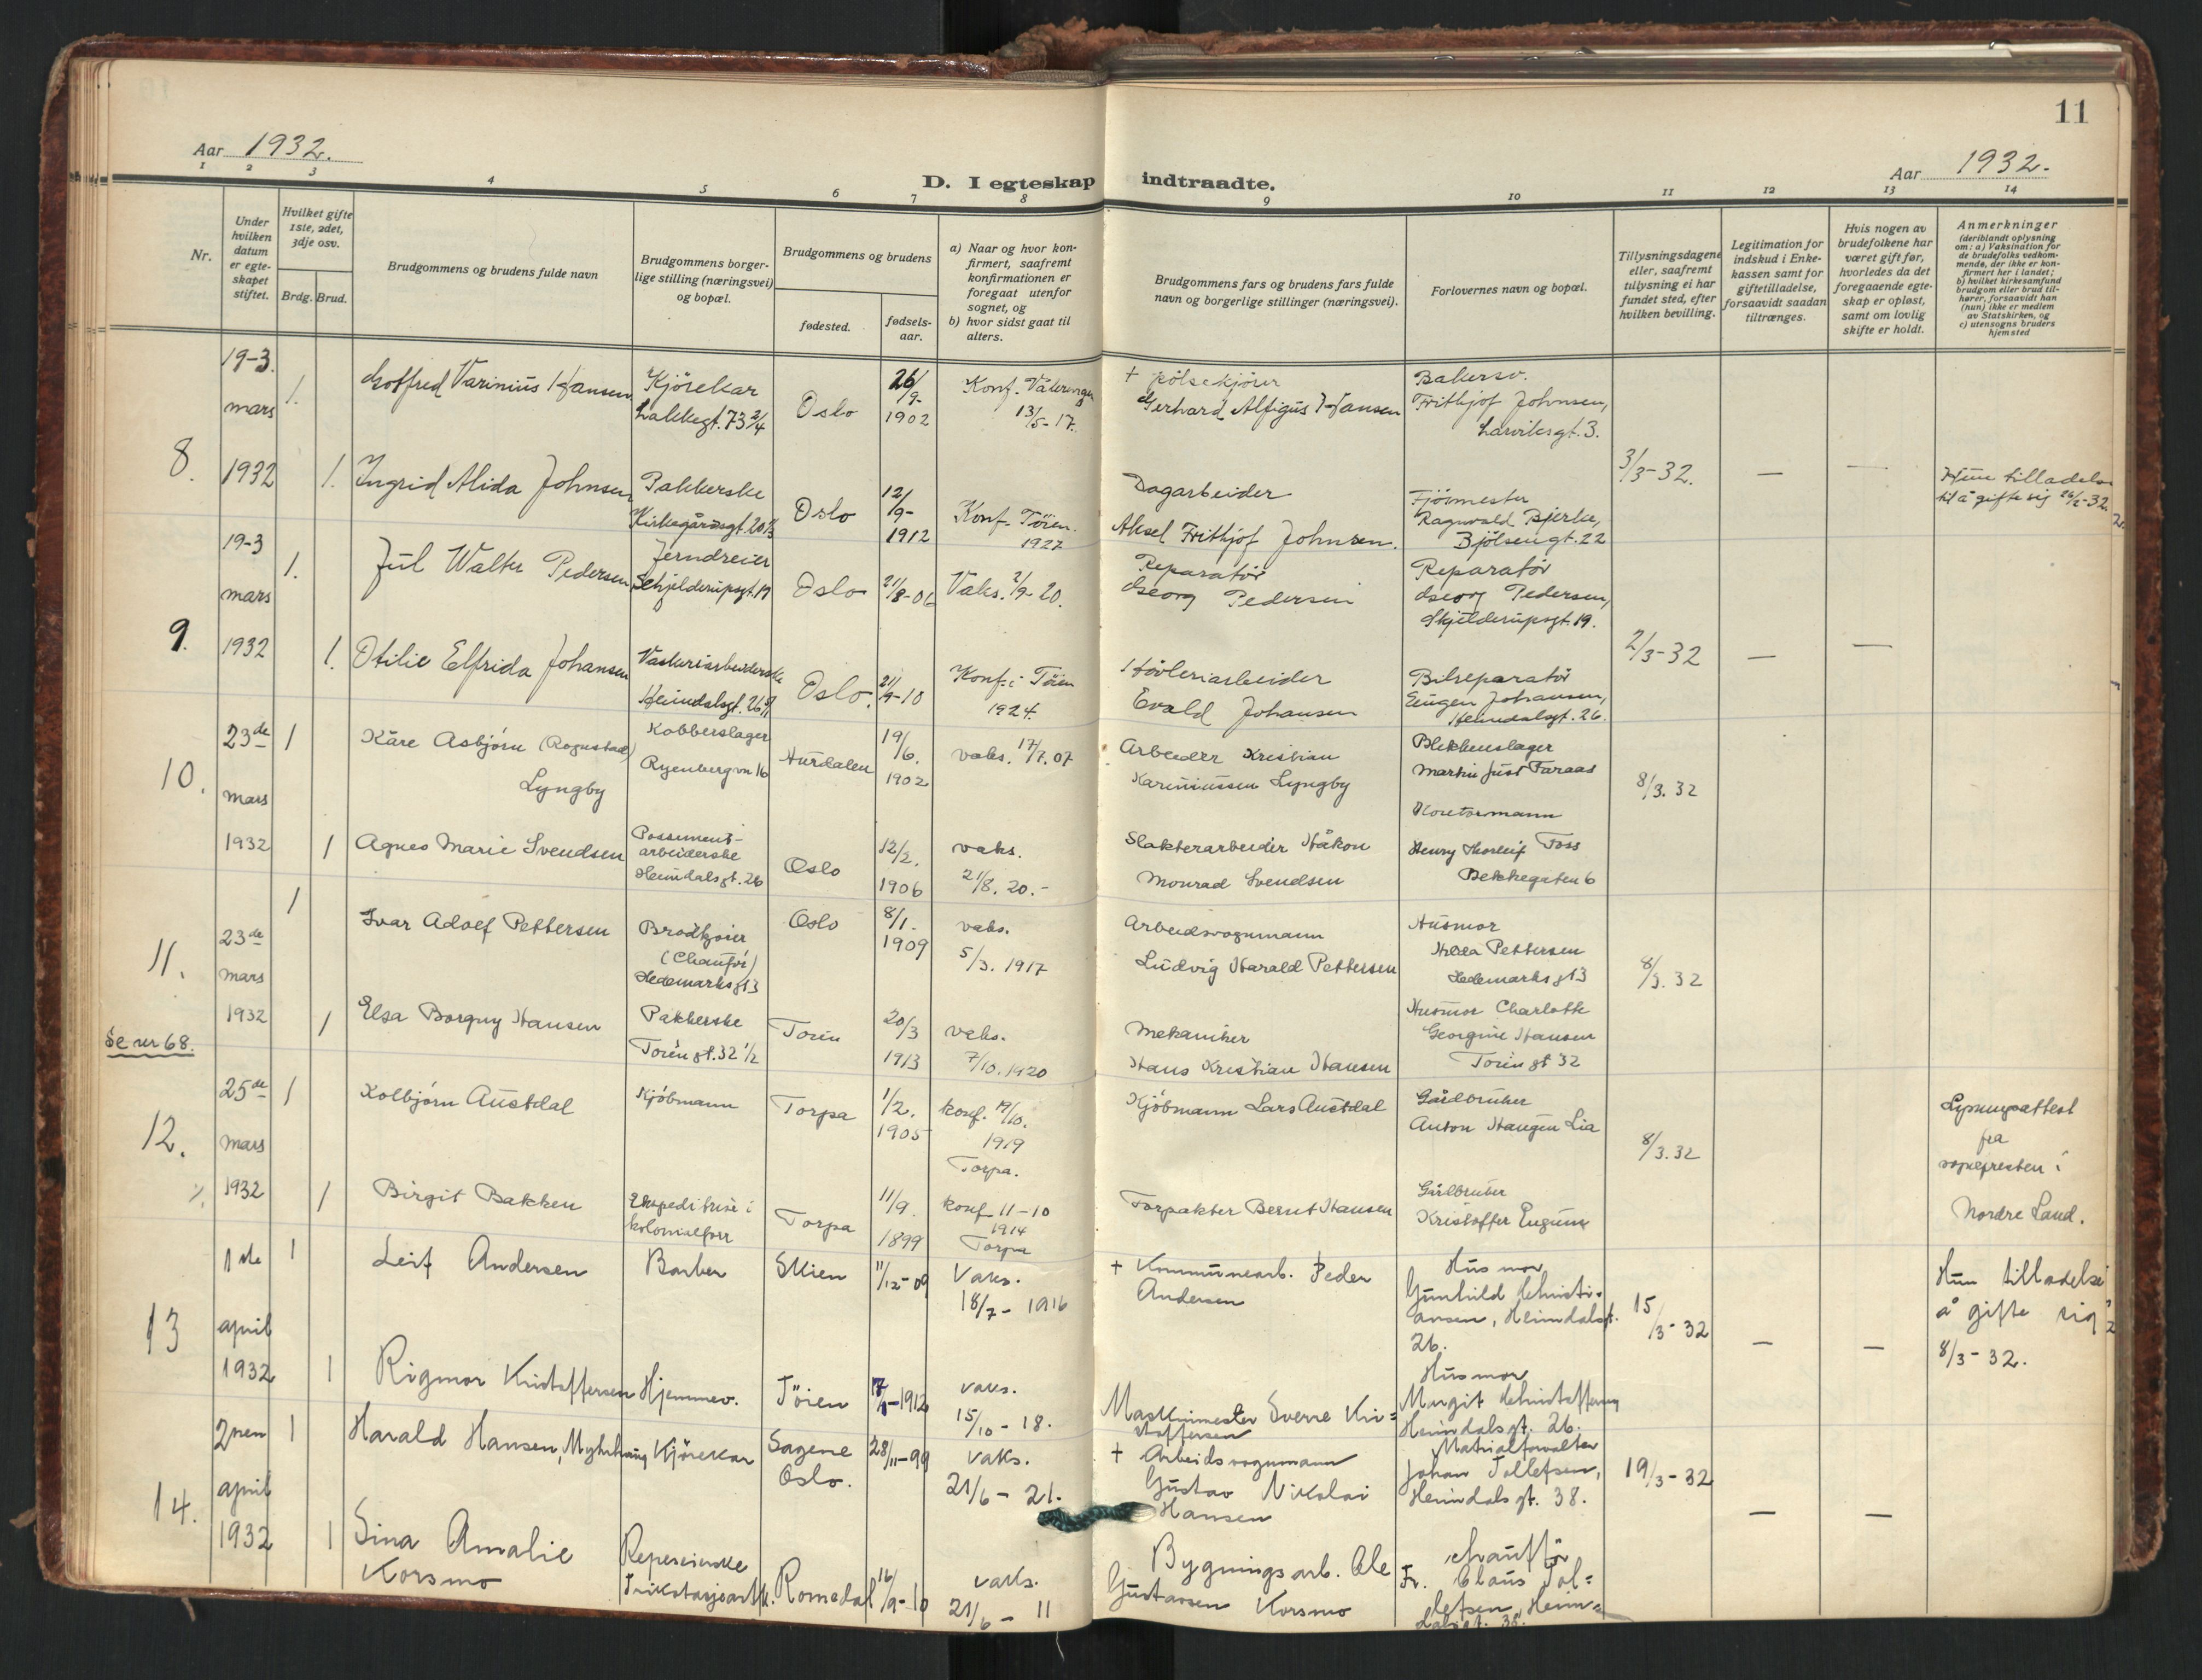 11
Aar 1932.
Aar 1932.
D. I egteskap indtraadte.
1 2 3 4 5 6 7 8 9 10 11 12 13 14
Nr.
Under hvilken datum er egteskapet stiftet.
Hvilket gifte 1ste, 2det, 3dje osv.
Brdg. Brud.
Brudgommens og brudens fulde navn
Brudgommens borgerlige stilling (næringsvei) og bopæl.
Brudgommens og brudens
fødested.
fødselsaar.
a) Naar og hvor konfirmert, saafremt konfirmationen er foregaat utenfor sognet, og
b) hvor sidst gaat til alters.
Brudgommens fars og brudens fars fulde navn og borgerlige stillinger (næringsvei).
Forlovernes navn og bopæl.
Tillysningsdagene eller, saafremt tillysning ei har fundet sted, efter hvilken bevilling.
Legitimation for indskud i Enkekassen samt for giftetilladelse, forsaavidt saadan tiltrænges.
Hvis nogen av brudefolkene har været gift før, hvorledes da det foregaaende egteskap er opløst, samt om lovlig skifte er holdt.
Anmerkninger
(deriblandt oplysning om: a) Vaksination for de brudefolks vedkommende, der ikke er konfirmert her i landet; b) hvilket kirkesamfund brudgom eller brud tilhører, forsaavidt han (hun) ikke er medlem av Statskirken, og c) utensogns bruders hjemsted
8. 19-3. mars 1932
1. Gotfred Varinius Hansen Kjørekar Lakkegt. 73 2/4 Oslo 26/9- 1902 Konf. Vålerengen 13/5-17.
+ pølsekjører Gerhard Alfigus Hansen
Bakersv. Frithjof Johnsen, Larviksgt. 3.
1. Ingrid Alida Johnsen Pakkerske Kirkegårdsgt. 20 Oslo 12/9- 1912 Konf. Tøien. 1927
Dagarbeider Aksel Frithjof Johnsen.
Ragnvald Bjerke, Bjølsengt. 22
3/3-32. — —
Hun tilladelse til å gifte sig 26/2-32.
9. 19-3 mars 1932
1. Jul Walter Pedersen Jerndreier Schjelderupsgt. 19 Oslo 21/8-06 Vaks. 2/9-20.
Reparatør Georg Pedersen
Reparatør Georg Pedersen, Skjelderupsgt. 19.
1. Otilie Elfrida Johansen Vaskeriarbeiderske Heimdalsgt. 26 Oslo. 21/9-10 Konf. i Tøien 1924.
Høvleriarbeider Evald Johansen
Bilreparatør Eugen Johansen, Heimdalsgt. 26.
2/3-32 — —
10. 23de mars 1932
1 Kåre Asbjørn (Rognstad) Lyngby Kobberslager Ryenbergvn 16 Hurdalen 19/6. 1902 vaks. 17/7. 07
Arbeider Kristian Kariniussen Lyngby
Blikkenslager Martin Just Faraas
8/3. 32
1 Agnes Marie Svendsen Possementarbeiderske Heimdalsgt. 26 Oslo 12/2. 1906 vaks. 21/8. 20.-
Slakterarbeider Håkon Monrad Svendsen
Kontormann Henry Thorleif Foss Bekkegaten 6
11. 23de mars 1932
1 Ivar Adolf Pettersen Brødkjører (Chauffør) Hedemarksgt 3 Oslo 8/1. 1909 vaks. 5/3. 1917
Arbeidsvognmann Ludvig Harald Pettersen
Husmor Hilda Pettersen Hedemarksgt 3
8/3. 32
Se nr 68.
1 Elsa Borgny Hansen Pakkerske Tøiengt. 32 1/2 Toien 20/3 1913 vaks. 7/10. 1920
Mekaniker Hans Kristian Hansen
Husmor Charlotte Georgine Hansen Toiengt 32
12. 25de mars 1932
1 Kolbjørn Austdal Kjøbmann Torpa 1/2. 1905 konf. 19/10. 1919 Torpa.
Kjøbmann Lars Austdal
Gårdbruker Anton Haugen Lia
8/3. 32
Lysningsattest fra sognepresten i Nordre Land.
1 Birgit Bakken Ekspeditrise i kolonialforr Torpa 11/9. 1899 konf 11-10 1914 Torpa
Forpakter Bernt Hansen
Gårdbruker Kristoffer
13 1ste april 1932
1 Leif Andersen Barber Skien 11/12-09 Vaks. 18/7- 1916
+ Kommunearb. Peder Andersen
Husmor Gunhild Christiansen, Heimdalsgt. 26.
15/3-32 — —
Hun tilladelse å gifte sig 8/3-32.
1 Rigmor Kristoffersen Hjemmev. Tøien 1912 vaks. 15/10-18.
Maskinmester Sverre Kristoffersen
Husmor Margit Christoffersen Heimdalsgt. 26.
14. 2nen april 1932
1 Harald Hansen, Myhrhaug Kjørekar Sagene Oslo. 28/11-99 vaks. 21/6- 21.
+ Arbeidsvognmann Gustav Nikolai Hansen
Matrialforvalter Johan Tollefsen, Heimdalsgt. 38.
19/3-32 — —
1 Sina Amalie Korsmo Trikotasjearb. Romedal 16/9-10 vaks. 21/6- 11
Bygningsarb. Ole Gustavsen Korsmo
chauffør Fr. Claus Tollefsen, Heimdalsgt. 38.